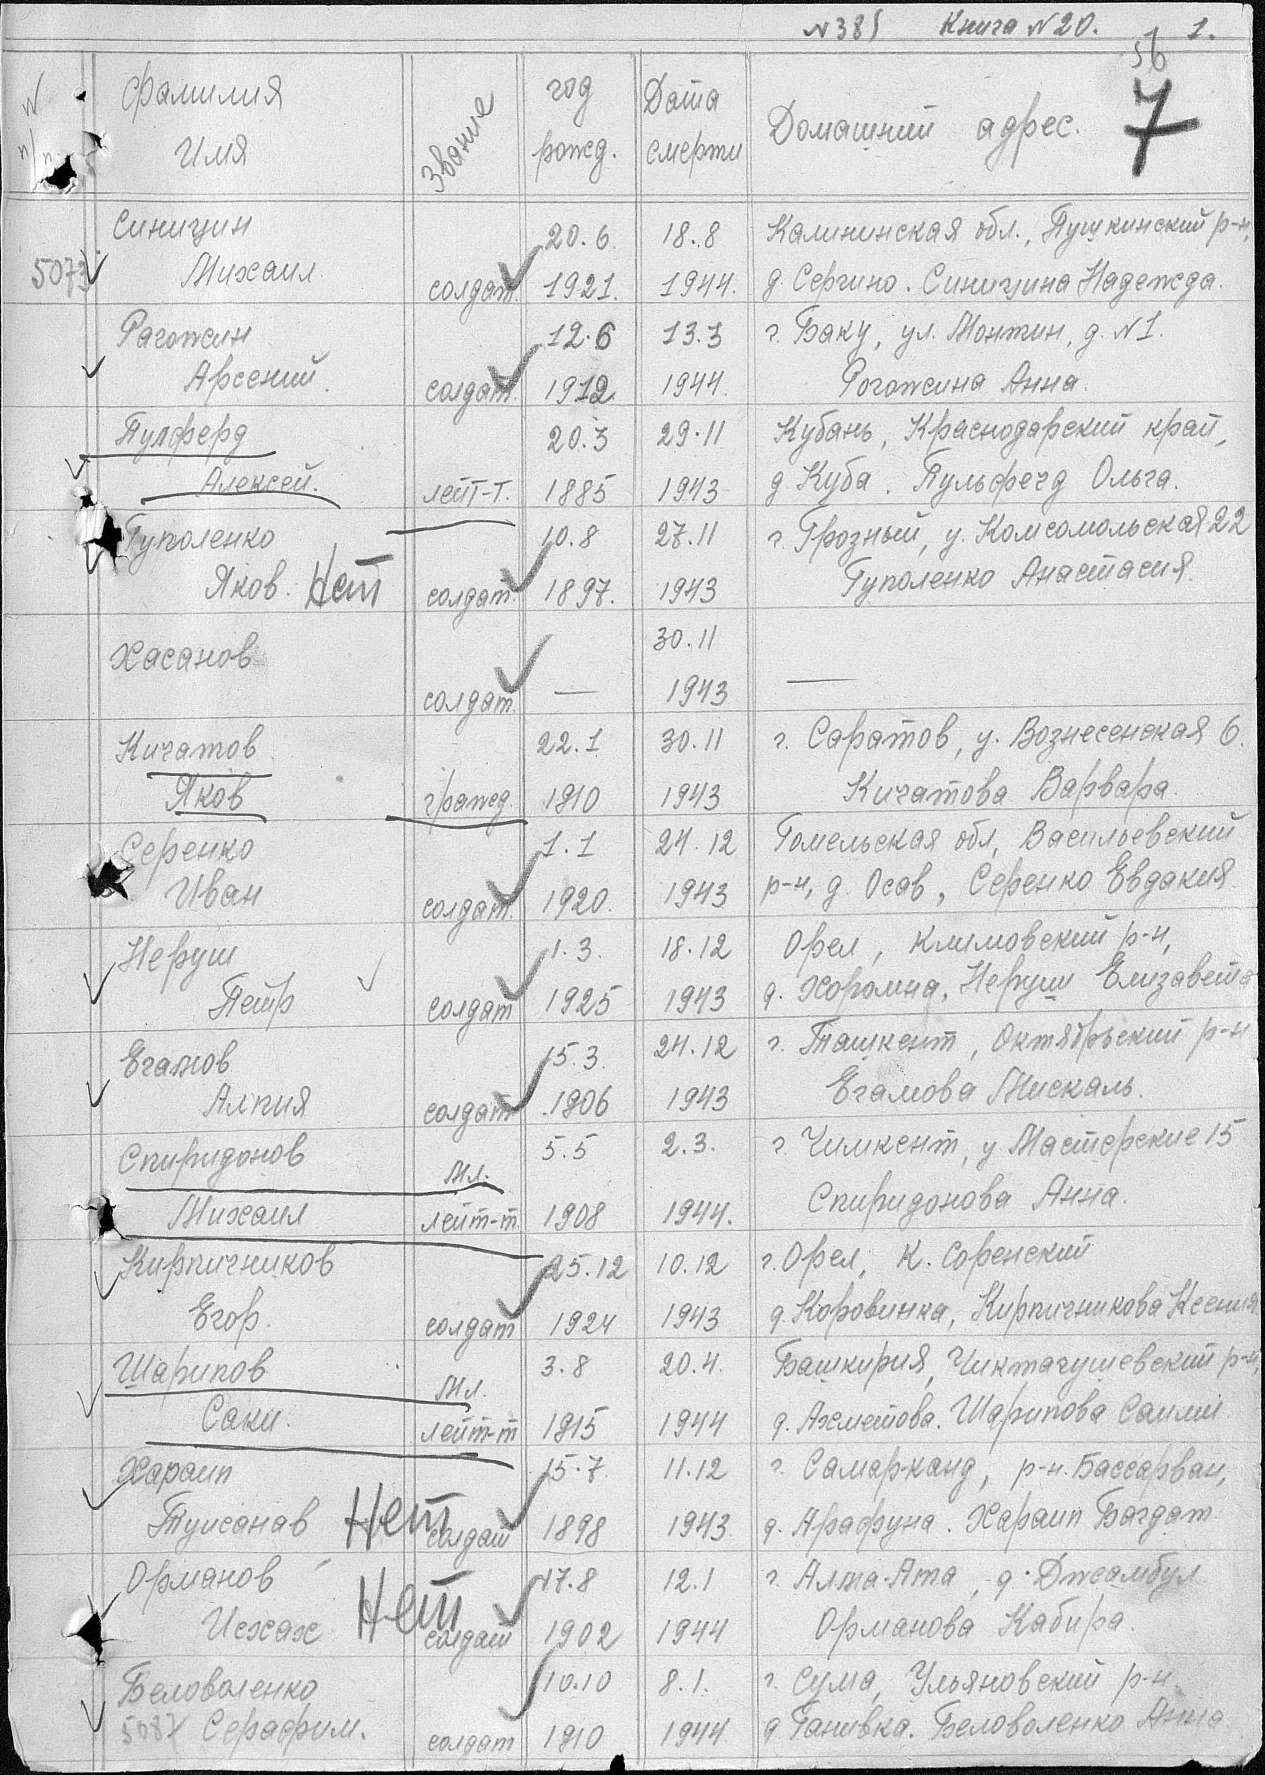 N385 Книга N20. 1.
56
7
N п/п
Фамилия Имя
Звание
год рожд.
Дата смерти
Домашний адрес.
Синицин 20.6. 18.8 Калининская обл., Пушкинский р-н,
5073 Михаил солдат. 1921. 1944. д. Сергино. Синицина Надежда.
Рагожин 12.6 13.3 г. Баку, ул. Монтин, д. N1.
Арсений. солдат. 1912 1944. Рогожина Анна.
Пулферд 20.3 29.11 Кубань, Краснодарский край,
Алексей. лейт-т. 1885 1943 д. Куба. Пульферд Ольга.
Гуполенко 10.8 27.11 г. Грозный, у. Комсомольская 22
Яков. Нет солдат. 1897. 1943 Гуполенко Анастасия.
Хасанов 30.11
солдат. — 1943 —
Кичатов 22.1 30.11 г. Саратов, у. Вознесенская 6.
Яков гражд. 1910 1943 Кичатова Варвара.
Серенко 1.1 24.12 Гомельская обл, Васильевский
Иван солдат. 1920. 1943 р-н, д. Осов, Серенко Евдакия.
Неруш 1.3. 18.12 Орел, Климовский р-н,
Петр солдат 1925 1943 д. Хоромна, Неруш Елизавета
Егамов 15.3. 24.12 г. Ташкент, Октябрьский р-н
Алпия солдат 1906 1943 Егамова Мискаль.
Спиридонов мл. 5.5 2.3. г. Чимкент, у Мастерские 15
Михаил лейт-т. 1908 1944. Спиридонова Анна.
Кирпичников 25.12 10.12 г. Орел, К. Соренский
Егор. солдат 1924 1943 д. Коровинка, Кирпичникова Ксения.
Шарипов мл. 3.8 20.4. Башкирия, Чиктагушевский р-н,
Саки. лейт-т 1915 1944 д. Ахметова. Шарипова Саили
Хараип 15.7. 11.12 г. Самарканд, р-н. Бассарван,
Туисанав Нет солдат 1898 1943 д. Арафуна. Хараип Багдат
Орманов 17.8 12.1 г. Алма-Ата, д. Джамбул
Исхак Нет солдат 1902 1944 Орманова Кабира.
Беловоленко 10.10 8.1. г. Сума, Ульяновский р-н
5087 Серафим. солдат 1910 1944 д Ганивка. Беловоленко Анна